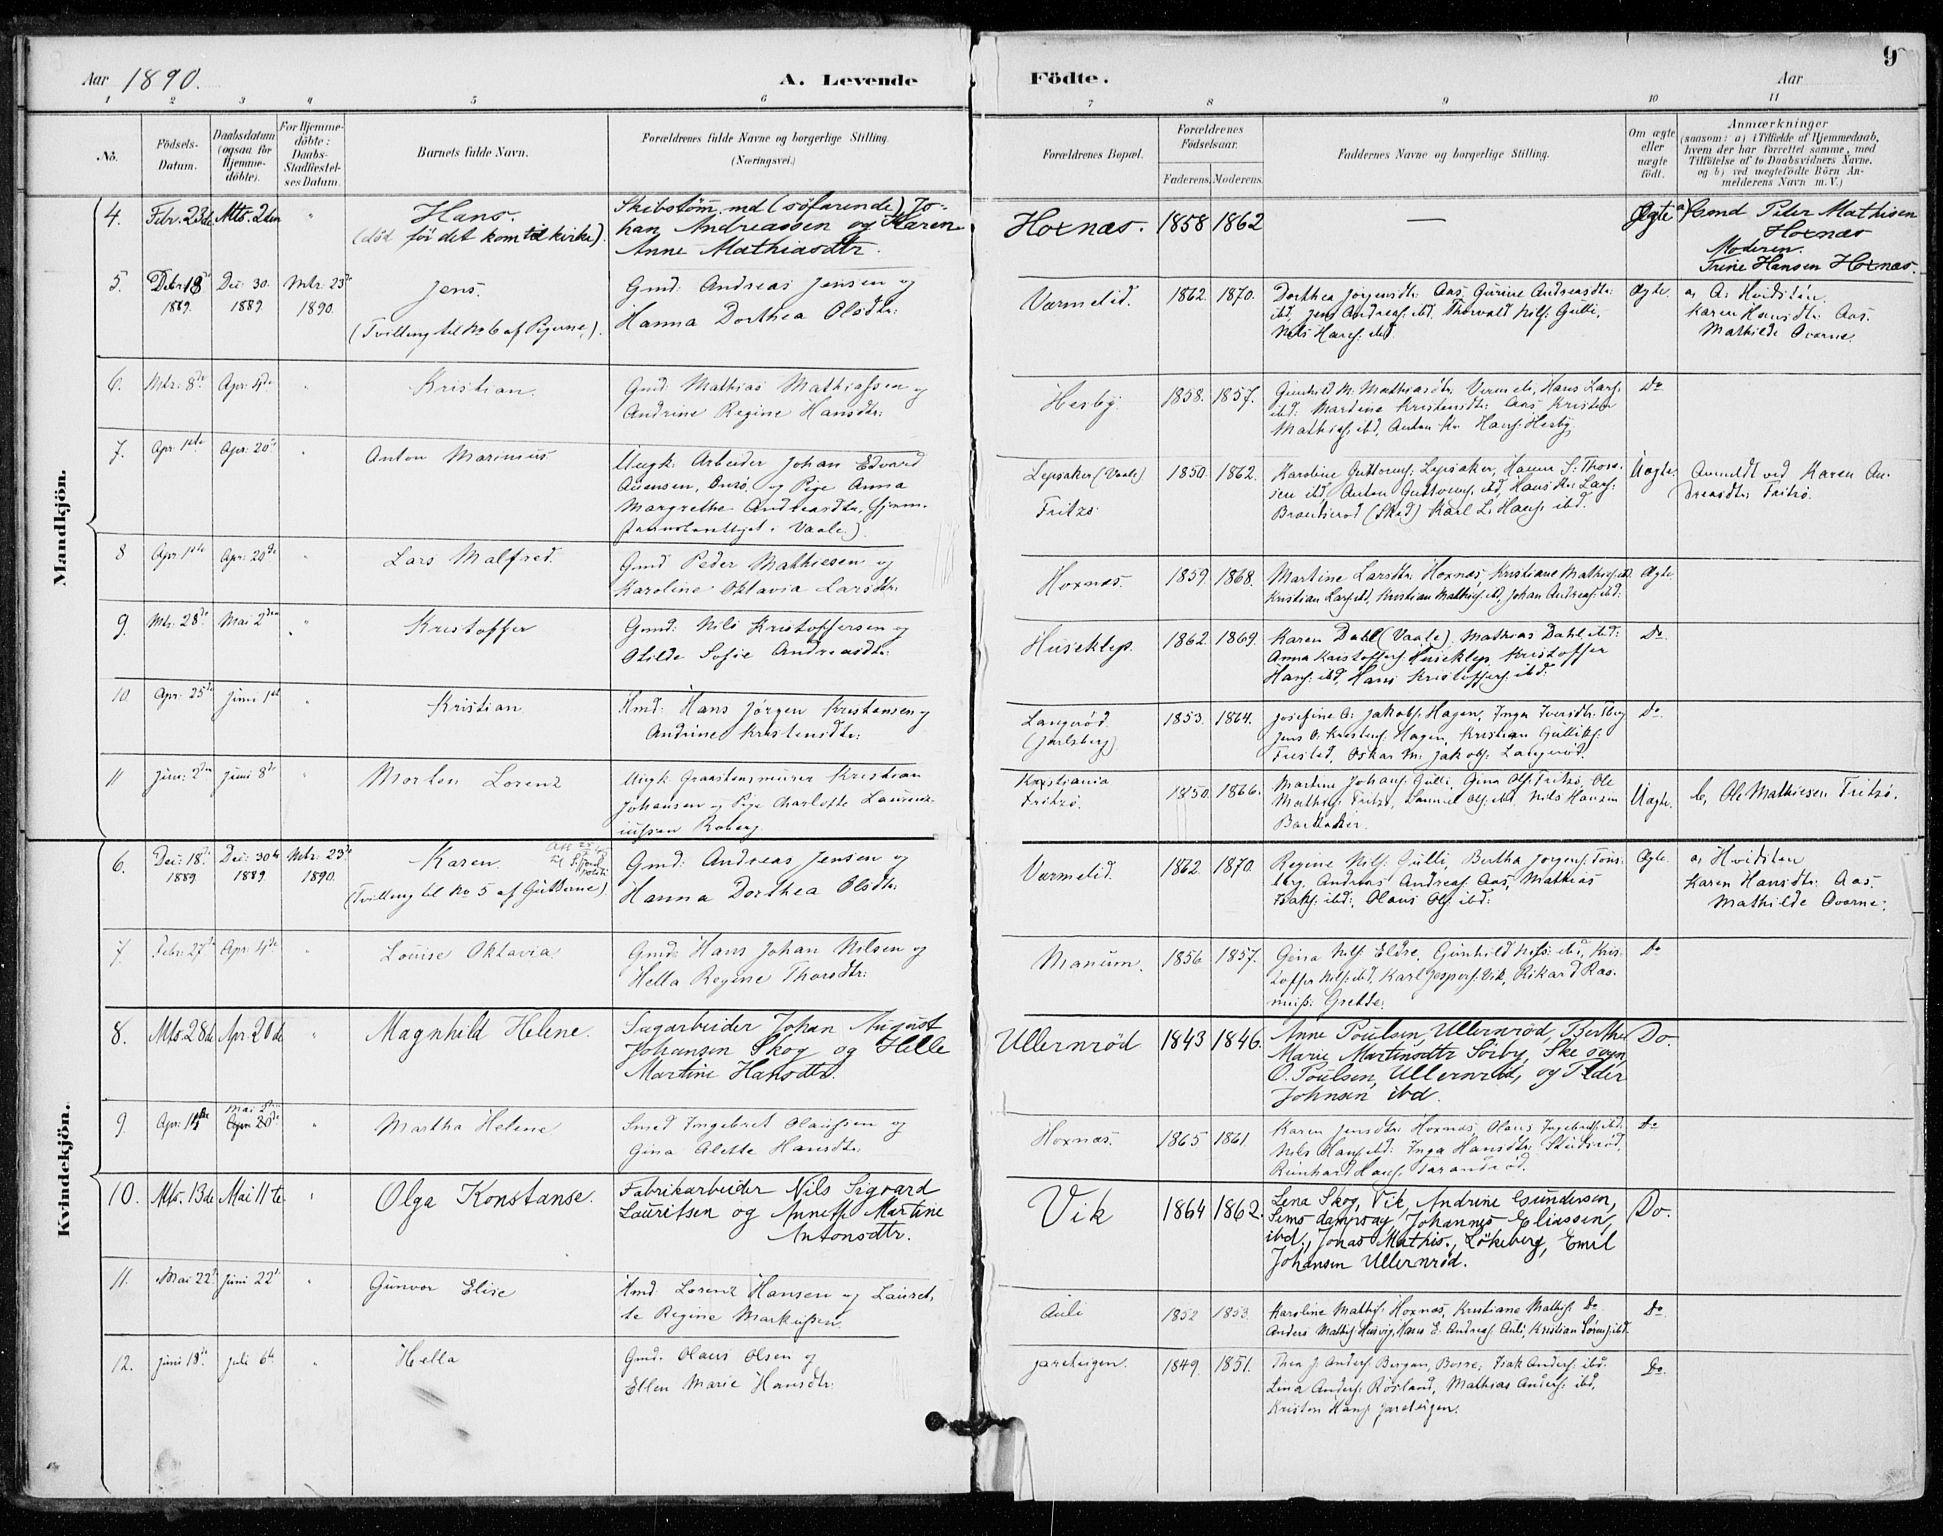 Aar 1890.
A. Levende
Födte.
Aar
9
1 2 3 4 5 6 7 8 9 10 11
No.
Födsels-
Datum.
Daabsdatum
(ogsaa for
Hjemme-
döbte).
For Hjemme-
döbte:
Daabs-
Stadfæstel-
ses Datum.
Barnets fulde Navn.
Forældrenes fulde Navne og borgerlige Stilling.
(Næringsvei.)
Forældrenes Bopæl.
Forældrenes
Födselsaar.
Faderens. Moderens.
Faddernes Navne og borgerlige Stilling.
Om ægte
eller
uægte
födt.
Anmærkninger
(saasom: a) i Tilfælde af Hjemmedaab,
hvem der har forrettet samme, med
Tilföielse af to Daabsvidners Navne,
og b) ved uægtefödte Börn An-
melderens Navn m. V.)
Mandkjön.
4. Febr. 23de Mts. 2den "
Hans.
(död för det kom til kirke).
Skibstömmd (söfarende) Jo-
han Andreassen og Karen
Anne Mathiasdtr.
Hoxnæs. 1858 1862 —
Ægte
a) Gmd Peter Mathisen
Hoxnæs
Moderen.
Trine Hansen Hoxnæs.
5. Debr. 18de Dec. 30. Mtr. 23de
1889. 1889. 1890.
Jens.
(Tvilling til No 6 af Pigerne.)
Gmd. Andreas Jensen og
Hanna Dorthea Olsdtr.
Værmelid. 1862. 1870.
Dorthea Jörgensdtr. Aas, Gurine Andreasdtr.
ibd, Jens Andreas. ibd. Thorvald Nils. Gulli,
Nils Hans. ibd.
Ægte.
a, A. Hvidsten.
Karen Hansdtr. Aas.
Mathilde Ovorne.
6. Mtr. 8de Apr. 4de "
Kristian.
Gmd: Mathias Mathiassen og
Andrine Regine Hansdtr.
Hesby. 1858. 1857.
Gunhild M. Mathiasdtr. Hans Lars.
ibd. Martine Kristensdtr. Aas Kristen
Mathias. ibd, Anton Hans. Hesby.
Do
7. Apr. 1ste Apr. 20de "
Anton Marinius
Ungk. Arbeider Johan Edvard
og Pige Anna
Margrethe Andreasdtr.
Vaale)
Lepsaker (Vaale)
Fritzö
1850. 1862.
Karoline Guttorms. Lepsaker, Thors-
sen ibd, Anton Guttorms. ibd, Hans Lars.
(Sked) Karl L. Hans. ibd.
Uægte.
Anmeldt ved Karen An-
dreasdtr. Fritzö.
8 Apr. 1ste Apr. 20de "
Lars Malfred.
Gmd Peder Mathiesen og
Karoline Oktavia Larsdtr.
Hoxnæs. 1859. 1868.
Martine Larsdtr. Hoxnæs, Kristiane Mathis. ibd
Kristian Lars. ibd, Kristian Mathis. ibd, Johan Andreas. ibd.
Ægte
9. Mtr. 28de Mai 2den "
Kristoffer
Gmd: Nils Kristoffersen og
Otilde Sofie Andreasdtr.
Huseklep. 1862. 1869.
Karen Dahl (Vaale). Mathias Dahl ibd.
Anna Kristoffers. Huseklep, Kristoffer
Hans. ibd, Hans Kristoffers. ibd.
Do.
10 Apr. 25de Juni 1ste "
Kristian
Gmd. Hans Jörgen Kristensen og
Andrine Kristensdtr.
Langeröd
(Jarlsberg)
1853. 1864.
Josefine A. Jakobs. Hagen, Inga Iversdtr.
Jens O. Kristens. Hagen, Kristian Gulliks.
Oskar M. Jakobs. Langeröd.
Do.
11 Juni 2den Juni 8de "
Morten Lorenz
Ungk. Graastensmurer Kristian
Johansen og Pige Charlotte Laurenz-
iussen Roberg.
Kristiania
Fritzö.
1850. 1866.
Martine Johans. Gulli, Gina Ols. Fritzö, Ole
Mathis. Fritzö, Samuel Ols. ibd. Nils Hansen
Barkaker.
Uægte.
b, Ole Mathiesen Fritzö.
Kvindekjön.
6. Dec. 18de Dec. 30te Mtr. 23de
1889 1889 1890.
Karen
(Tvilling til No 5 af Gutterne)
Gmd: Andreas Jensen og
Hanna Dorthea Olsdtr.
Værmelid. 1862. 1870.
Regine Nils. Gulli, Bertha Jörgens. Töns-
berg, Andreas Andreas. Aas, Mathias
Isaks. ibd., Olaus Ols. ibd.
Ægte.
a, Hvidsten
Karen Hansdtr. Aas.
Mathilde Ovorne.
7. Febr. 27de Apr. 4de "
Louise Oktavia
Gmd: Hans Johan Nilsen og
Hella Regine Thorsdtr.
Manum. 1856. 1857.
Gina Nils. Eldre, Gunhild Nils. ibd, Kris-
toffer Nils. ibd, Karl Jespers. Vik, Rikard Ras-
muss. Grette.
Do
8. Mts. 28de Apr. 20de "
Magnhild Helene.
Sagarbeider Johan August
Johansen Skog og Helle
Martine Hansdtr.
Ullernröd 1843 1846.
Anne Poulsen, Ullernröd, Berthe
Marie Martinsdtr Sörby, Ske sogn
O. Poulsen, Ullernröd, og Peder
Johnsen ibd.
Do.
9. Apr. 14de Mai 2den
Apr. 20de "
Martha Helene
Smed Ingebret Olaussen og
Gina Alette Hansdtr.
Hoxnæs. 1865 1861
Karen Jensdtr. Hoxnæs, Olaus Ingebrets. ibd.
Nils Hans. ibd. Inga Hansdtr.
Reinhard Hans. Taranröd.
Do
10. Mts. 13de Mai 11te "
Olga Konstanse.
Fabrikarbeider Nils Sigvard
Lauritsen og Annette Martine
Antonsdtr.
Vik 1864 1862.
Lena Skog, Vik, Andrine Gundersen,
Sems dampsag, Johannes Eliassen,
ibd., Jonas Mathis., Lökeberg, Emil
Johansen Ullernröd.
Do.
11. Mai 22de Juni 22de "
Gunvor Elise
Gmd. Lorenz Hansen og Lauret-
te Regine Markussen.
Auli 1852 1853.
Karoline Mathis. Hoxnæs, Kristiane Mathis. Do
Anders Mathis. Husvig, Hans E. Andreas. Auli, Kristian Sörens. ibd.
Do
12. Juni 18de Juli 6te "
Hella
Gmd. Olaus Olsen og
Ellen Marie Hansdtr.
Jareteigen. 1849. 1851.
Thea J. Anders. Bergan, Borre; Isak Anders. ibd.
Lina Anders. Rösland, Mathias Anders. ibd,
Kristen Hans. Jareteigen.
Do.